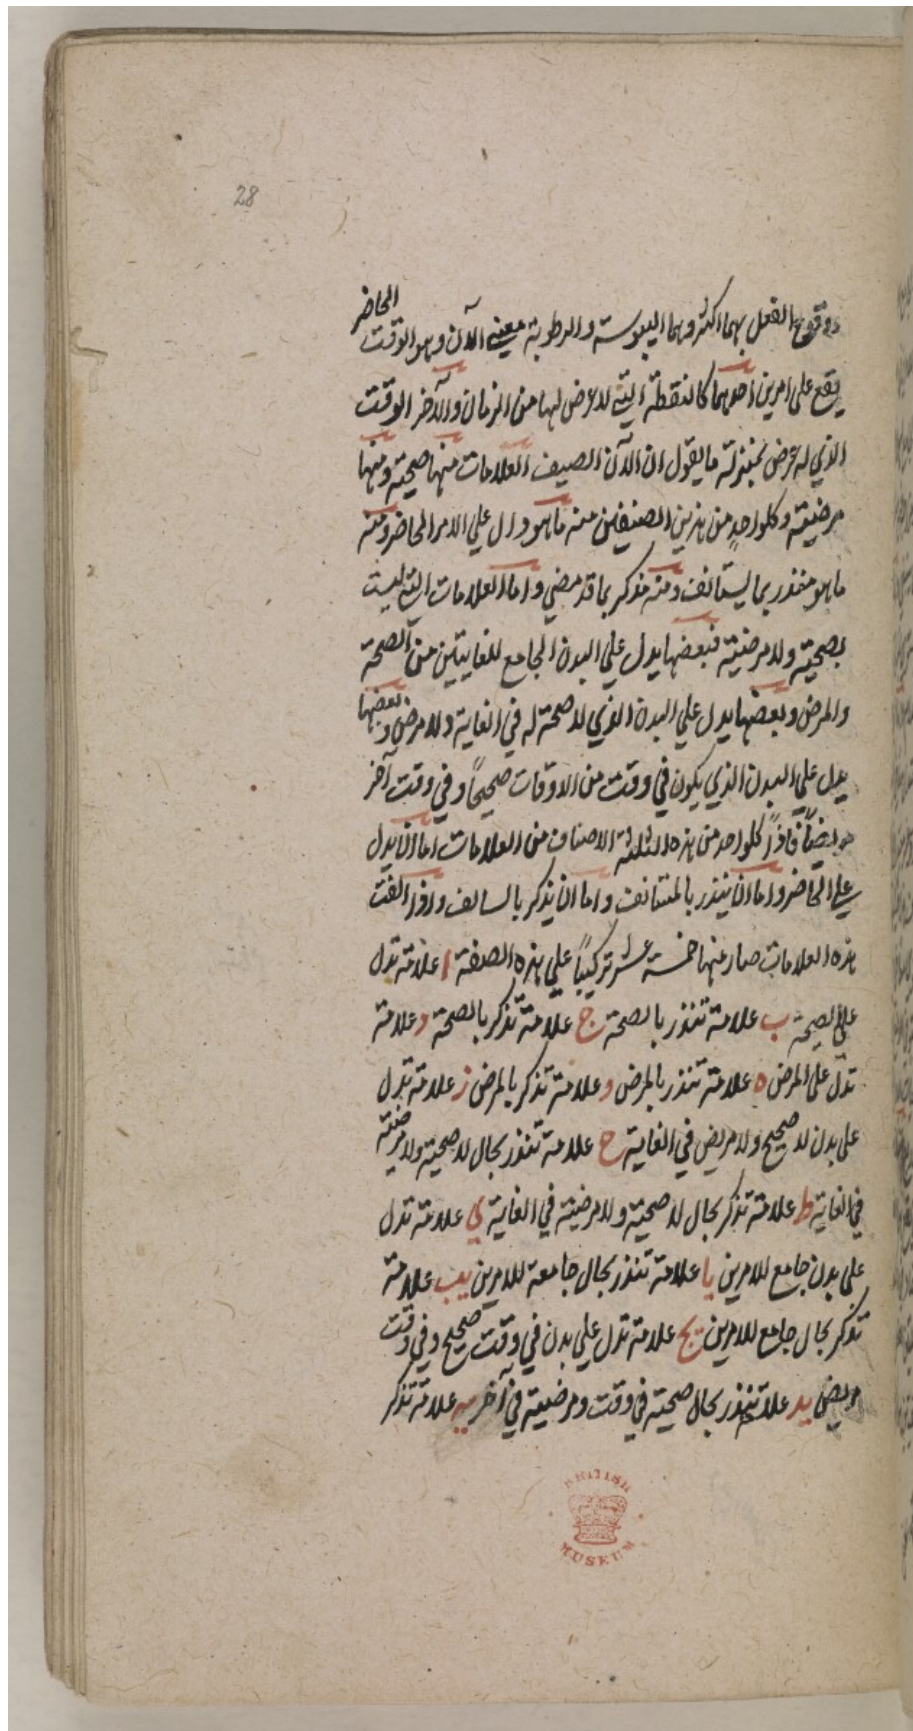 28
الحاضر
ووقوع الفعل بهما اكثر وهما اليبوسة والرطوبة معنى الآن وهو الوقت
يقع على امرين احدهما كالنقطة التي لا عرض لها من الزمان والآخر الوقت
الذي له عرض بمنزلة ما يقول ان الآن الصيف العلامات منها صحية ومنها
مرضية وكلواحدٍ من هذين الصنفين منه ما هو دال علي الامر الحاضر ومنه
ما هو منذر بما يستانف ومنه مذكر بما قد مضي واما العلامات التي ليست
بصحية ولا مرضية فبعضها يدل علي البدن الجامع للغايتين من الصحة
والمرض وبعضها يدل علي البدن الذي لا صحة له في الغاية ولا مرض وبعضها
يدل علي البدن الذي يكون في وقت من الاوقات صحيحاً وفي وقت آخر
مريضاً فاذاً كلواحد من هذه الثلثة الاصناف من العلامات اما ان يدل
علي الحاضر واما ان ينذر بالمستانف واما ان يذكر بالسالف واذا الفت
هذه العلامات صار عنها خمسة عشر تركيباً علي هذه الصفة ا علامة تدل
على الصحة ب علامة تنذر بالصحة ج علامة تذكر بالصحة د علامة
تدل على المرض ه علامة تنذر بالمرض و علامة تذكر بالمرض ز علامة تدل
على بدن لا صحيح ولا مريض في الغاية ح علامة تنذر بحال لا صحية ولا مرضية
في الغاية ط علامة تذكر بحال لا صحية ولا مرضية في الغاية ي علامة تدل
على بدن جامع للامرين يا علامة تنذر بحال جامعة للامرين يب علامة
تذكر بحال جامع للامرين يج علامة تدل علي بدن في وقت صحيح وفي وقت
مريض يد علامة تنذر بحال صحية في وقت ومرضية في آخر يه علامة تذكر
BRITISH
MUSEUM